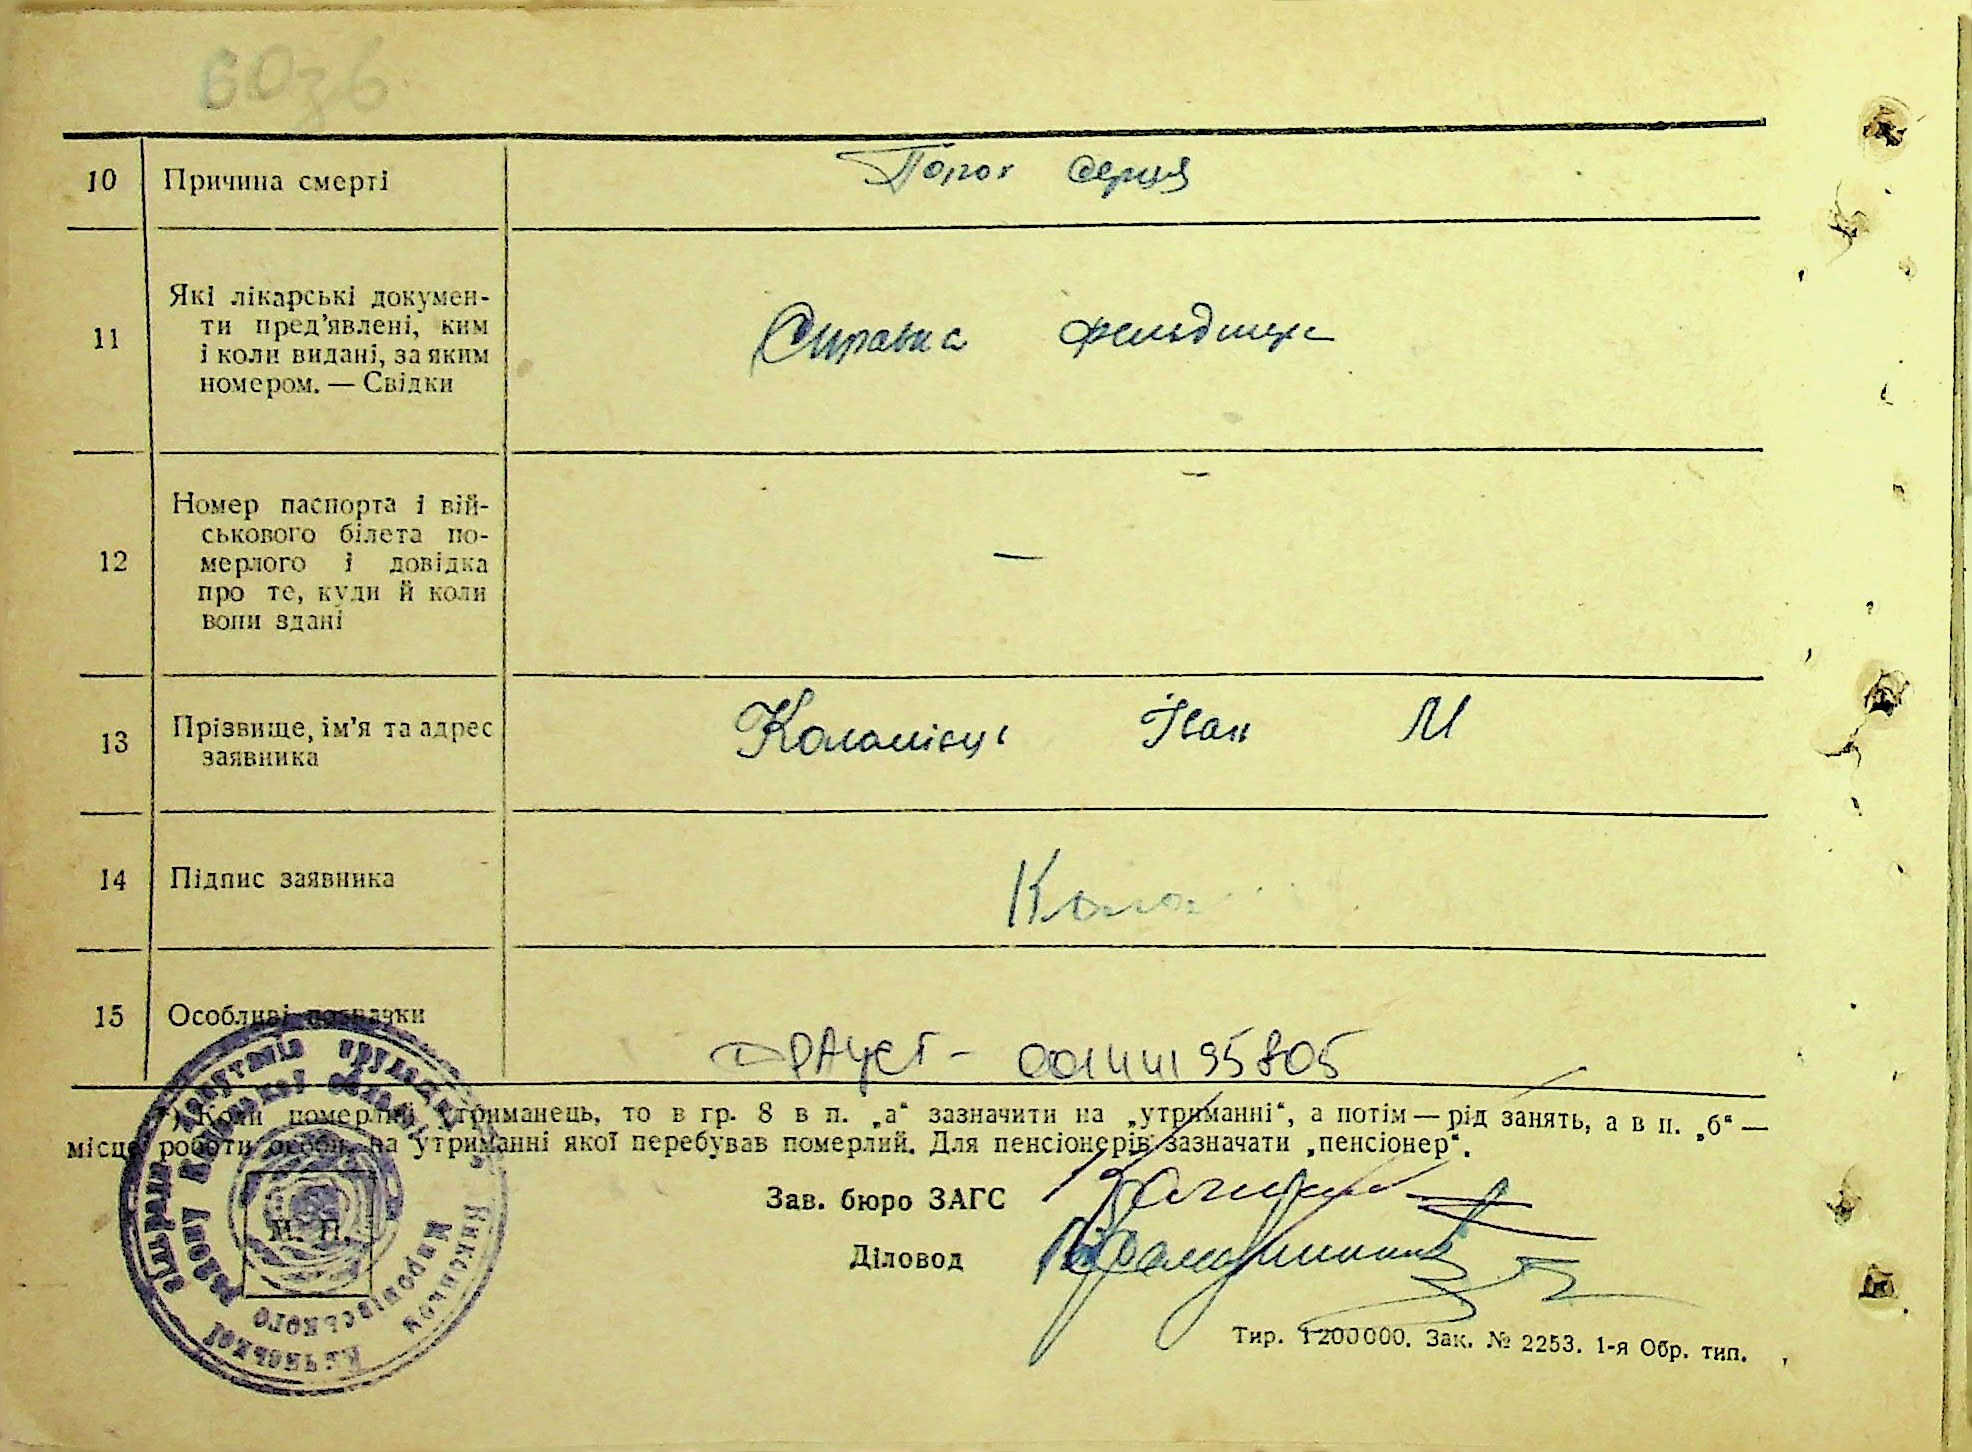 10 Причина смерті
Порок серця
11 Які лікарські докумен-
ти пред’явлені, ким
і коли видані, за яким
номером. — Свідки
Справка фельдшера
12 Номер паспорта і вій-
ськового білета по-
мерлого і довідка
про те, куди й коли
вони здані
—
13 Прізвище, ім’я та адрес
заявника
Коломієць Іван М
14 Підпис заявника
15 Особливі позначки
ДРАЦСГ - 00144195805
*) Коли померлий утриманець, то в гр. 8 в п. „а“ зазначити на „утриманні“, а потім — рід занять, а в п. „б“ —
місце роботи особи, на утриманні якої перебував померлий. Для пенсіонерів зазначати „пенсіонер“.
Зав. бюро ЗАГС
Діловод
М. П.
Тир. 1200000. Зак. № 2253. 1-я Обр. тип.